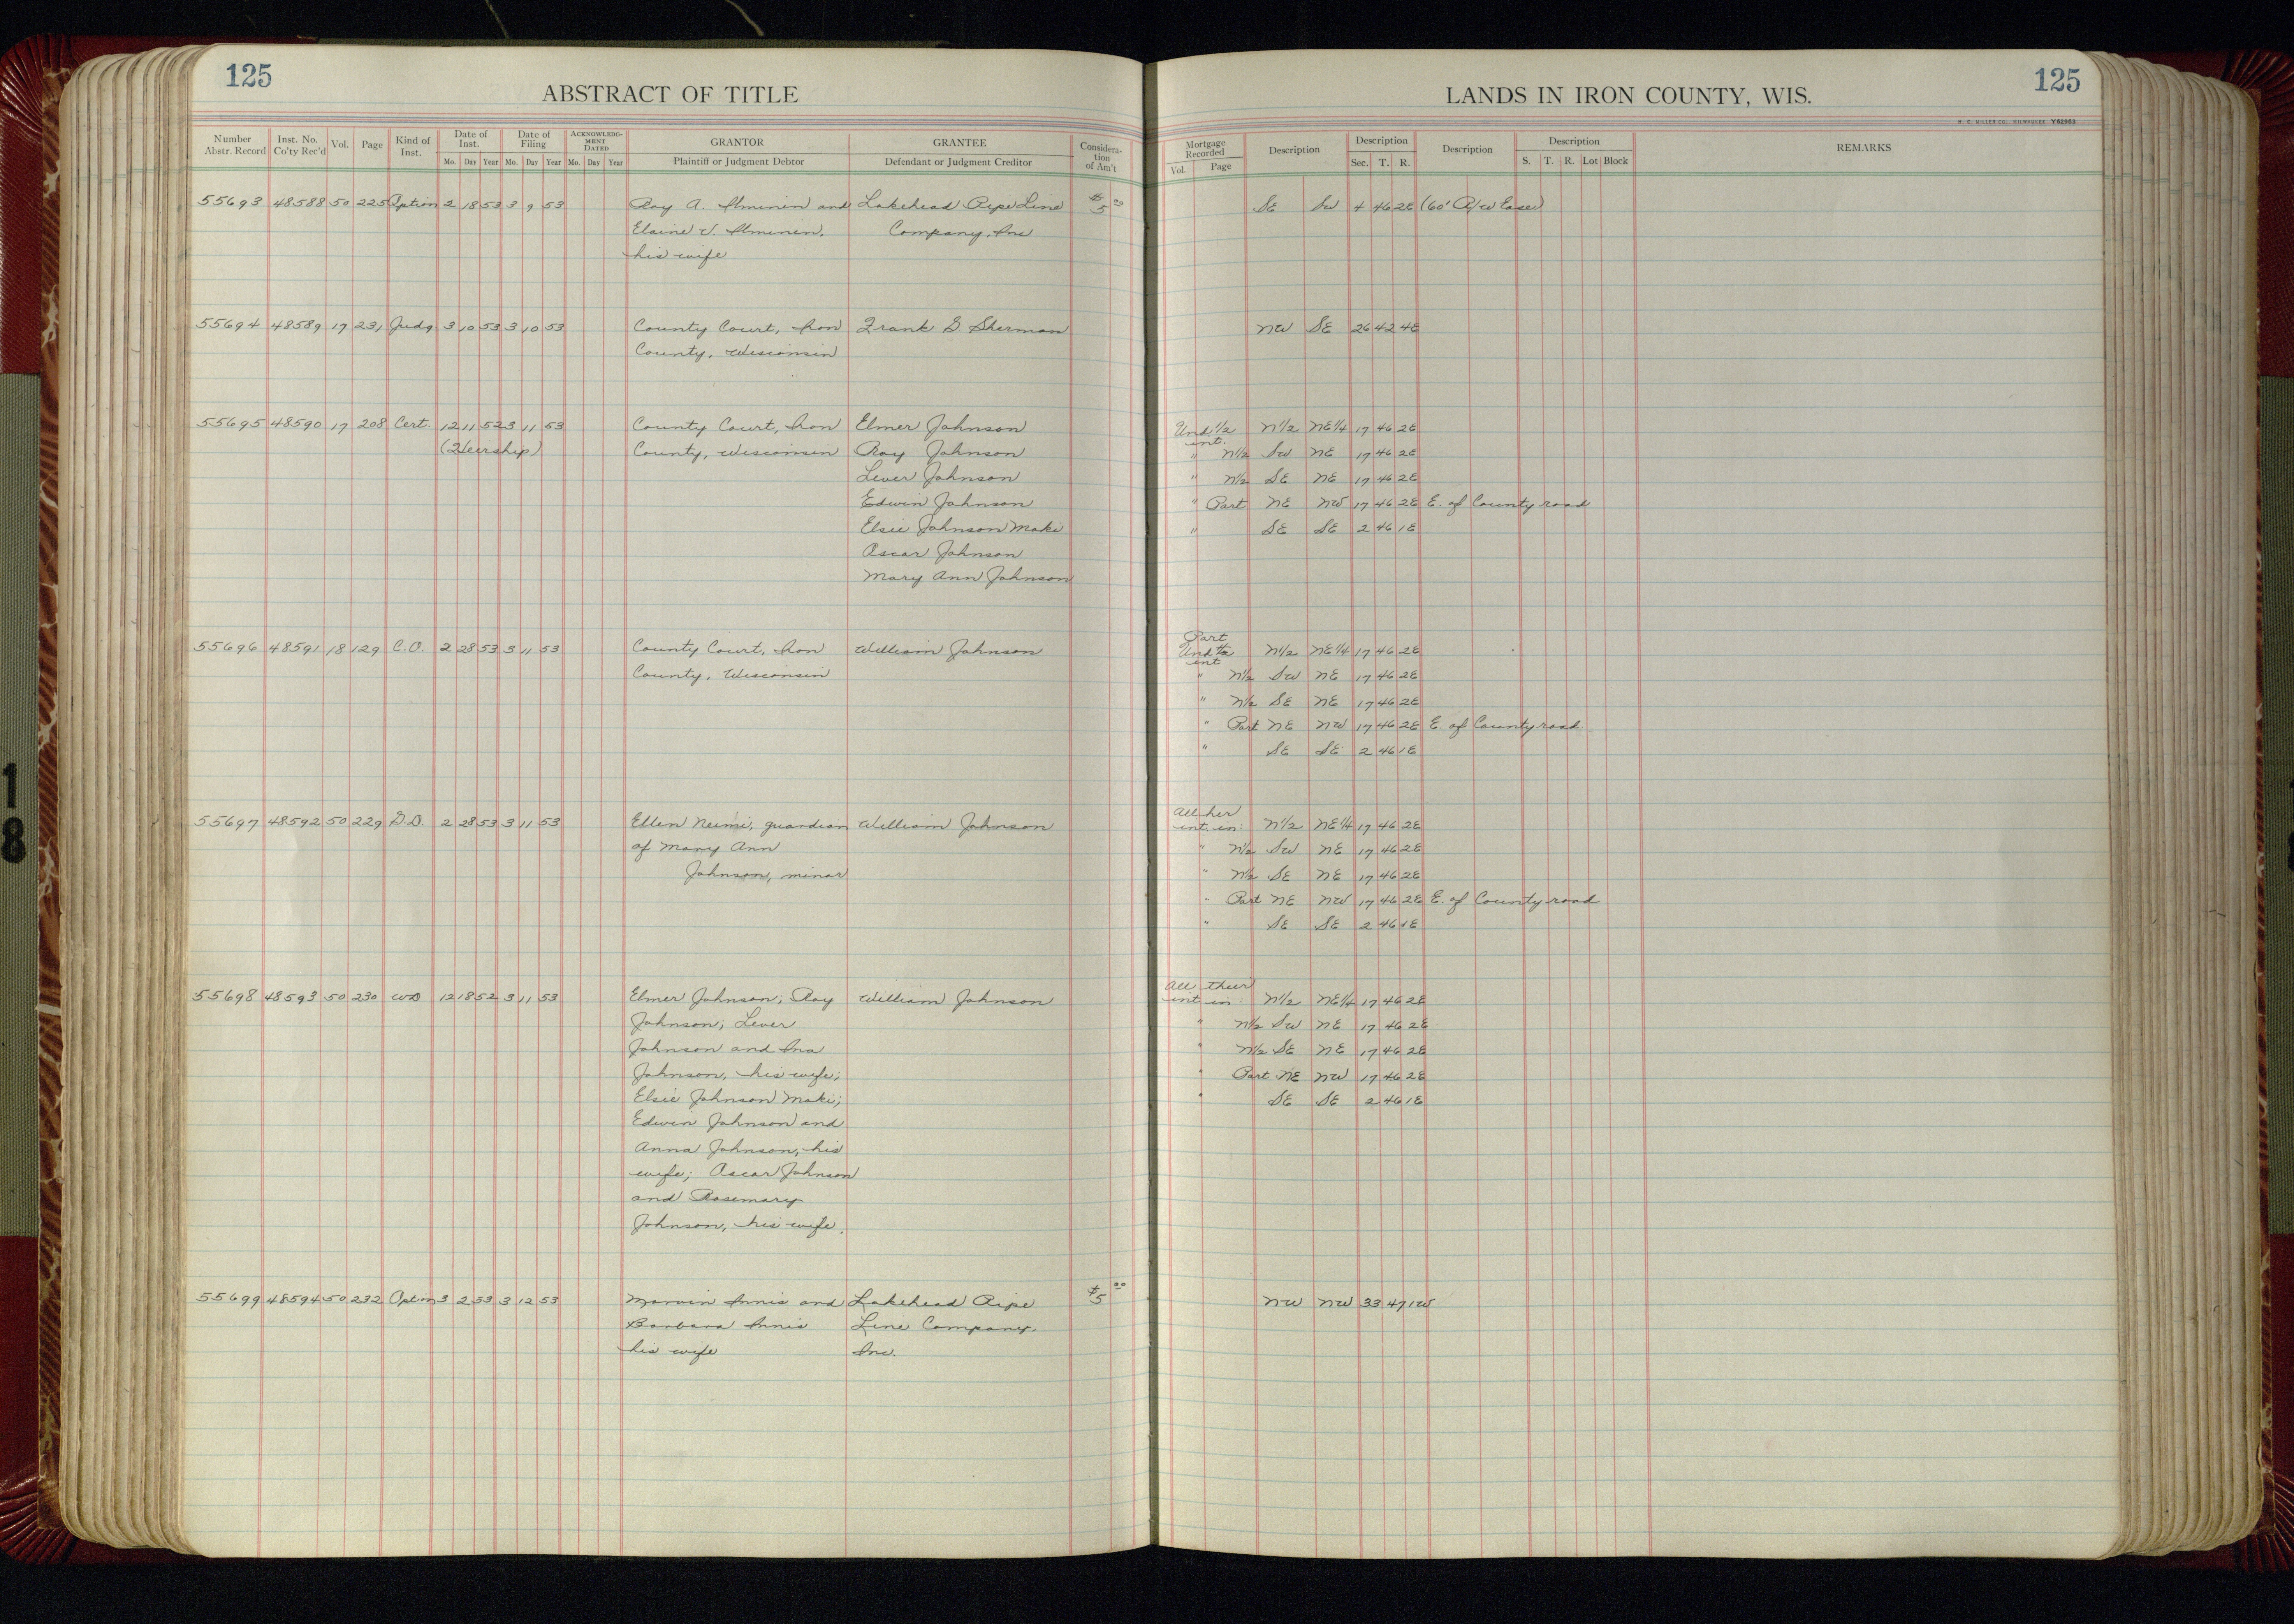 125
ABSTRACT OF TITLE
LANDS IN IRON COUNTY, WIS.
125
H. C. MILLER CO., MILWAUKEE V62963
Number Abstr. Record Inst. No. Co'ty Rec'd Vol. Page Kind of Inst. Date of Inst. Mo. Day Year Date of Filing Mo. Day Year ACKNOWLEDGMENT DATED Mo. Day Year GRANTOR Plaintiff or Judgment Debtor GRANTEE Defendant or Judgment Creditor Consideration of Am't Mortgage Recorded Vol. Page Description Description Sec. T. R. Description Description S. T. R. Lot Block REMARKS
55693 48588 50 225 Option 2 18 53 3 9 53 Roy A. Ilminen and Lakehead Pipe Line $5 00 SE SW 4 46 2E (60' R/W Ease)
Elaine V. Ilminen, Company, Inc
his wife
55694 48589 17 231 Judg 3 10 53 3 10 53 County Court, Iron Frank G Sherman NW SE 26 42 4E
County, Wisconsin
55695 48590 17 208 Cert. 12 11 52 3 11 53 County Court, Iron Elmer Johnson Und. 1/2 int. N1/2 NE1/4 17 46 2E
(Heirship) County, Wisconsin Roy Johnson " N1/2 SW NE 17 46 2E
Lever Johnson " N1/2 SE NE 17 46 2E
Edwin Johnson " Part NE NW 17 46 2E E. of County road
Elsie Johnson Maki " SE SE 2 46 1E
Oscar Johnson
Mary Ann Johnson
Part
55696 48591 18 129 C.O. 2 28 53 3 11 53 County Court, Iron William Johnson Und 1/2 int N1/2 NE1/4 17 46 2E
County, Wisconsin " N1/2 SW NE 17 46 2E
" N1/2 SE NE 17 46 2E
" Part NE NW 17 46 2E E. of County road
" SE SE 2 46 1E
All her
55697 48592 50 229 G.D. 2 28 53 3 11 53 Ellen Neimi, guardian William Johnson int. in: N1/2 NE1/4 17 46 2E
of Mary Ann " N1/2 SW NE 17 46 2E
Johnson, minor " N1/2 SE NE 17 46 2E
" Part NE NW 17 46 2E E. of County road
" SE SE 2 46 1E
All their
55698 48593 50 230 WD 12 18 52 3 11 53 Elmer Johnson; Roy William Johnson int in: N1/2 NE1/4 17 46 2E
Johnson; Lever " N1/2 SW NE 17 46 2E
Johnson and Ina " N1/2 SE NE 17 46 2E
Johnson, his wife; " Part NE NW 17 46 2E
Elsie Johnson Maki; " SE SE 2 46 1E
Edwin Johnson and
Anna Johnson, his
wife; Oscar Johnson
and Rosemary
Johnson, his wife.
55699 48594 50 232 Option 3 2 53 3 12 53 Marvin Innis and Lakehead Pipe $5 00 NW NW 33 47 1W
Barbara Innis Line Company,
his wife Inc.
18